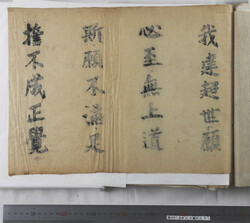 我建超世願
必至無上道
斯願不滿足
誓不成正覺